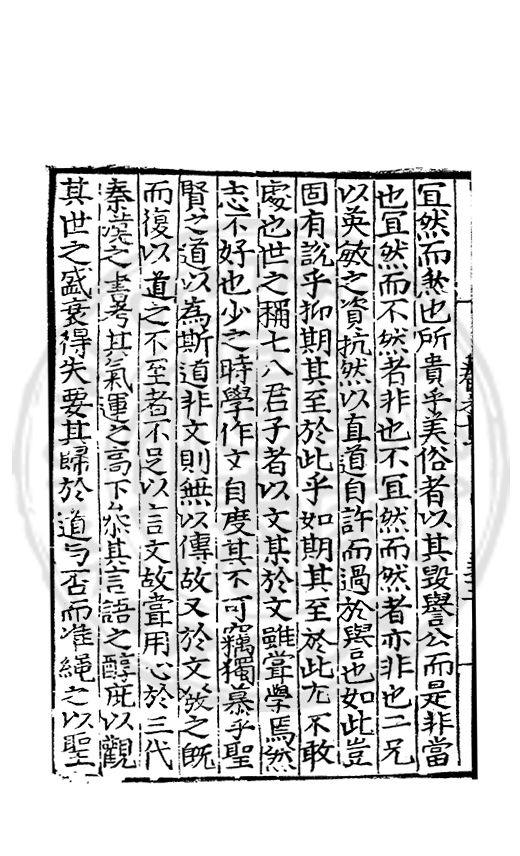 宜然而然也所貴乎美俗者以其毀譽公而是非當
也宜然而不然者非也不宜然而然者亦非也二兄
以英敏之資抗然以直道自許而過於譽也如此豈
固有說乎抑期其至於此乎如期其至於此尤不敢
處也世之稱七八君子者以文某於文雖嘗學焉然
志不好也少之時學作文自度其不可竊獨慕乎聖
賢之道以為斯道非文則無以傳故又於文發之旣
而復以道之不至者不足以言文故嘗用心於三代
秦漢之書考其氣運之高下叅其言語之醇疵以觀
其世之盛衰得失要其歸於道与否而准繩之以聖